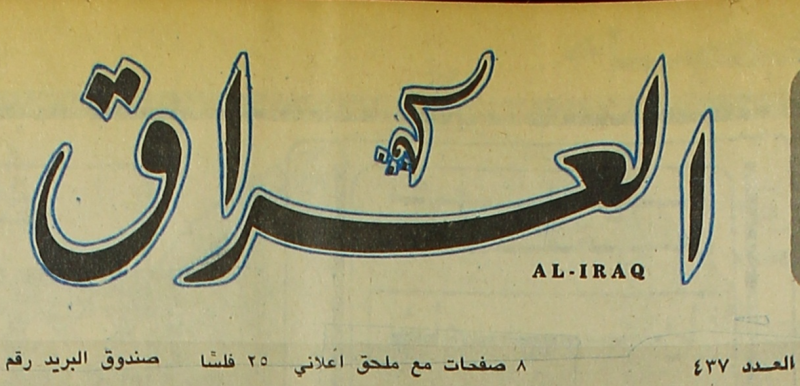 العراق
AL-IRAQ
العــدد ٤٣٧ ٨ صفحات مع ملحق اعلاني ٢٥ فلسًا صندوق البريد رقم